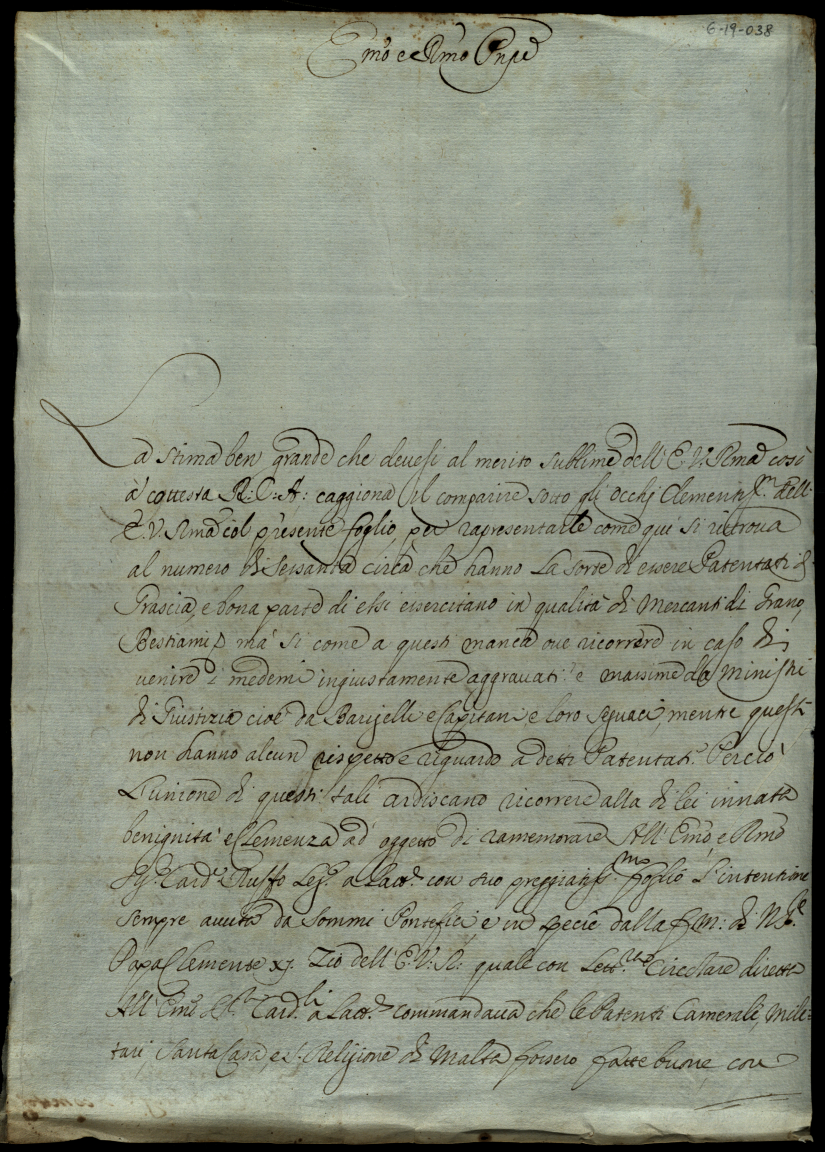 6-19-038
Emo e Rmo Pnpe
La stima ben grande che devesi al merito sublime dell' E. V. Rma così
à cottesta R: C: A: caggiona il comparire sotto gli occhj Clementissm. dell'
E. V. Rma col presente foglio, per rapresentarle come qui si ritrova
al numero di sessanta circa che hanno la sorte di essere Patentati di
Grascia, e bona parte di essi essercitano in qualità di Mercanti di Grano,
Bestiami, mà si come a questi manca ove ricorrere in caso di
venire i medemi ingiustamente aggravati e massime da Ministri
di Giustizia cioè da Barigelli e Capitani e loro seguaci, mentre questi
non hanno alcun rispetto e riguardo a detti Patentati. Perciò
L'unione di questi tali ardiscano ricorrere alla di lei innata
benignità e Clemenza ad oggetto di ramemorare All' Emo, e Rmo
Sigr. Card. Ruffo Leg. a Latt.e con suo preggiatissmo foglio L'intentione
sempre avuta da Sommi Pontefici e in specie dalla f: M: di
Papa Clemente XJ. Zio dell' E: V: R: quale con Lett.ra Circolare diretta
All' Emi Card.li a Latt.e commandava che le Patenti Camerali, Mili=
tari, Santa Casa, e S. Religione di Malta fossero fatte buone, con